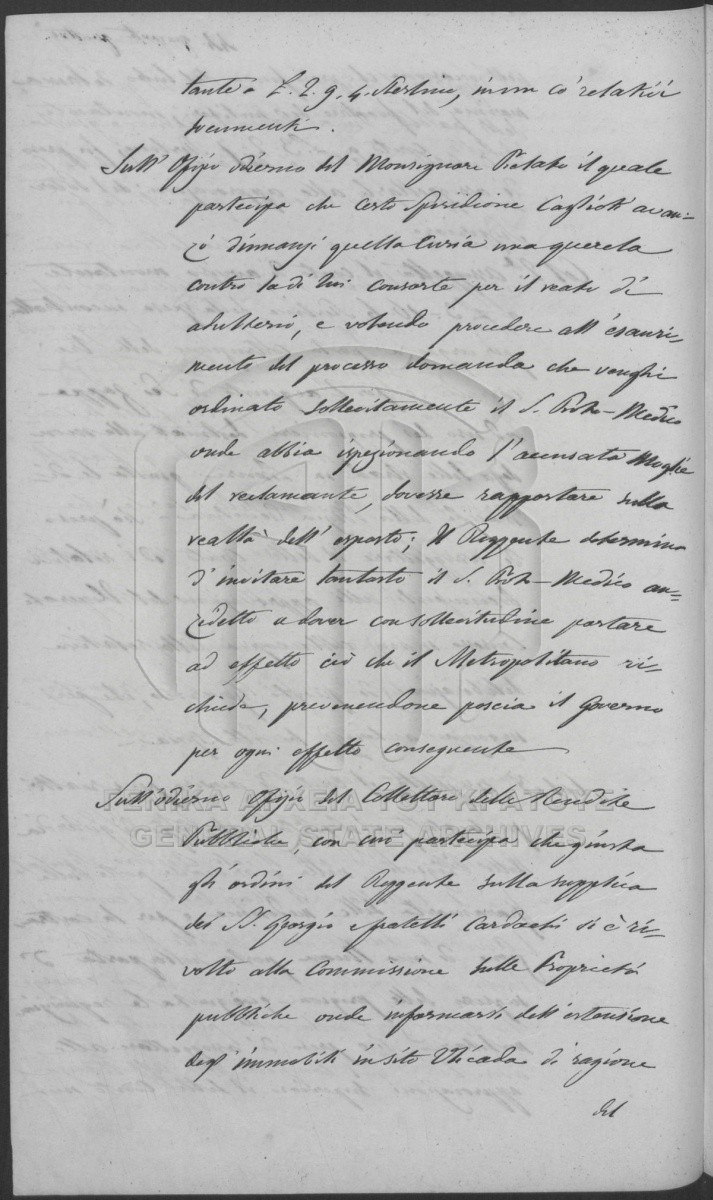 tante a L. 2. 9. 4. Sterline, insin co' relativi
documenti.
Sull' Ofizio odierno del Monsignore Prelato il quale
partecipa che certo Spiridione Caglioti avan=
zò dinnanzi quella Curia una querela
contro la di lui consorte per il reato di
adulterio, e volendo procedere all' esauri=
mento del processo domanda che venghi
ordinato sollecitamente il S. Proto-Medico
onde abbia ispezionando l'accusata Moglie
del reclamante, dovesse rapportare sulla
realtà dell' esposto; Il Reggente determina
d' invitare tantosto il S. Proto-Medico an=
zidetto a dover con sollecitudine portare
ad effetto ciò che il Metropolitano ri=
chiede, prevenendone poscia il Governo
per ogni effetto conseguente
Sull' odierno Ofizio del Collettore delle Rendite
Pubbliche, con cui partecipa che giusta
gli ordini del Reggente sulla supplica
dei SS. Giorgio e fratelli Cardachi si è ri=
volto alla Commissione sulle Proprietà
pubbliche onde informarsi dell' estensione
degl' immobili in sito di ragione
del
ΓΕΝΙΚΑ ΑΡΧΕΙΑ ΤΟΥ ΚΡΑΤΟΥΣ
GENERAL STATE ARCHIVES